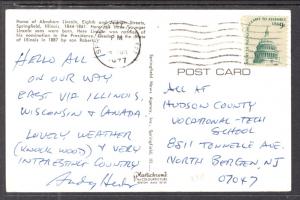 Home of Abraham Lincoln, Eighth and Jackson Streets,
Springfield, Illinois. 1844-1861. Here the three younger Lincoln
sons were born. Here Lincoln was notified of
his nomination to the Presidency.
of Illinois in 1887 by son Robert.
HELLO ALL
ON OUR WAY
EAST VIA ILLINOIS,
WISCONSIN & CANADA.
LOVELY WEATHER
(KNOCK WOOD) & VERY
INTERESTING COUNTRY
Andy
1977
Springfield News Agency, Inc., Springfield, Ill.
9c
POST CARD
ALL AT
HUDSON COUNTY
VOCATIONAL-TECH
SCHOOL
8511 TONNELLE AVE.
NORTH BERGEN, NJ
07047